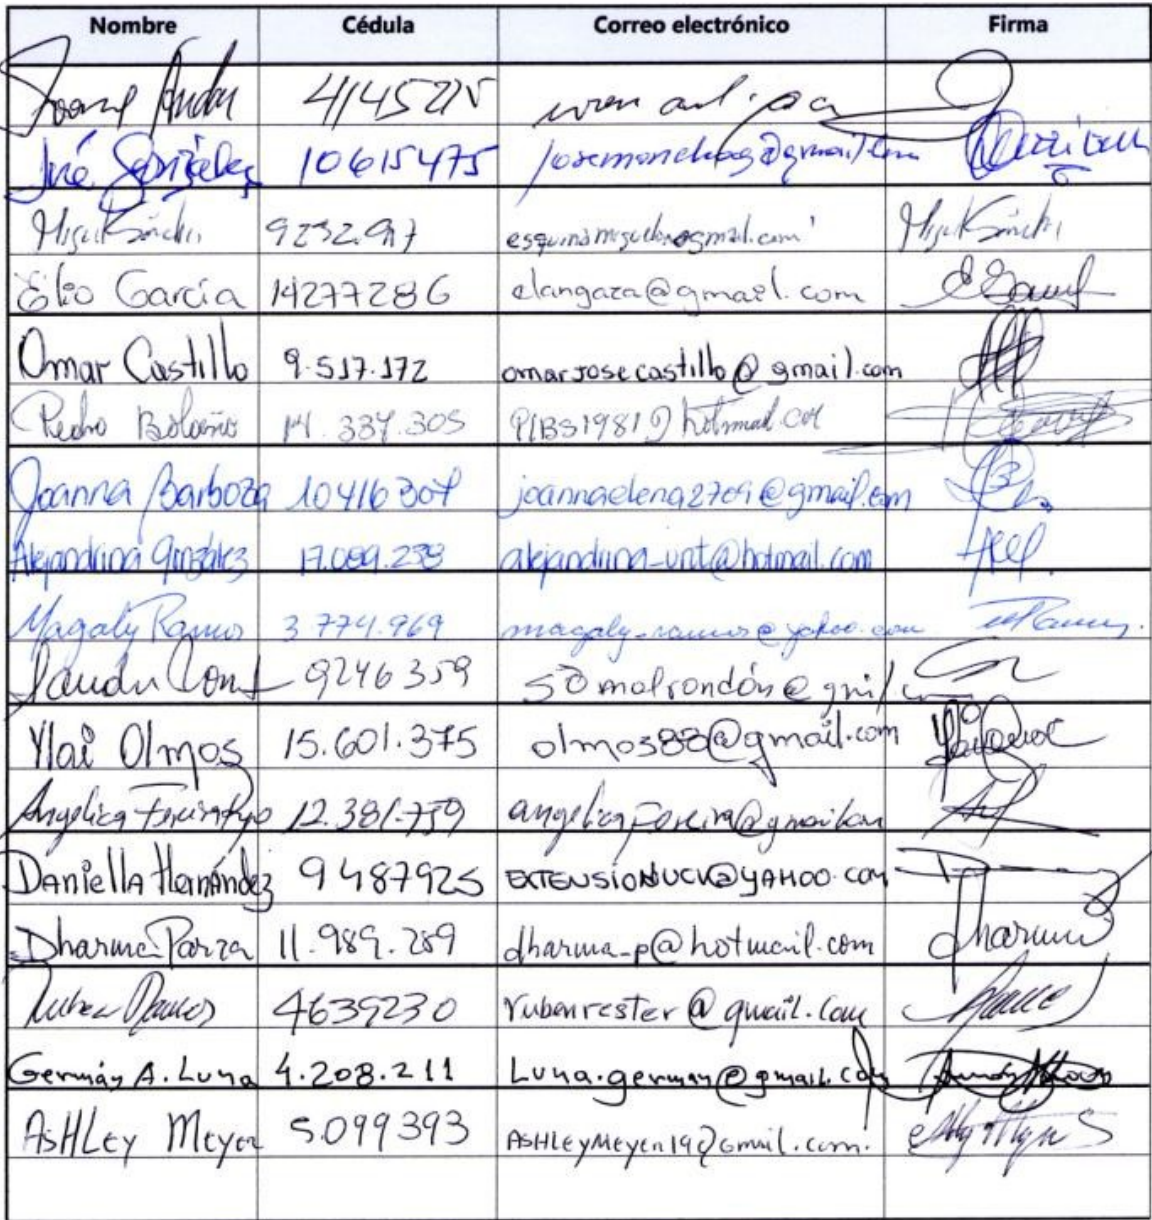 Nombre Cédula Correo electrónico Firma
4145215
José González 10615475
Miguel Sánchez 9232.997 Miguel Sánchez
Elio García 14277286 elangaza@gmail.com
Omar Castillo 9.517.172 omarjosecastillo@gmail.com
Pedro Bolaño 14.337.305
Joanna Barboza 10416307 joannaelena2709@gmail.com
Alejandrina González 17.089.238 alejandrina-unt@hotmail.com
Magaly Ramos 3.774.969 magaly-ramos@yahoo.com
9246359
Ylai Olmos 15.601.375 olmos88@gmail.com
Angelica 12.381.759
Daniella Hernández 9487925 EXTENSIONUCV@YAHOO.COM
Dharma Parra 11.989.289 dharma_p@hotmail.com Dharma
Ruben Ramos 4639230 rubenrester@gmail.com
Germán A. Luna 4.208.211 Luna.german@gmail.com
AsHLey Meyer 5.099393 AsHLeyMeyer19@Gmail.com.